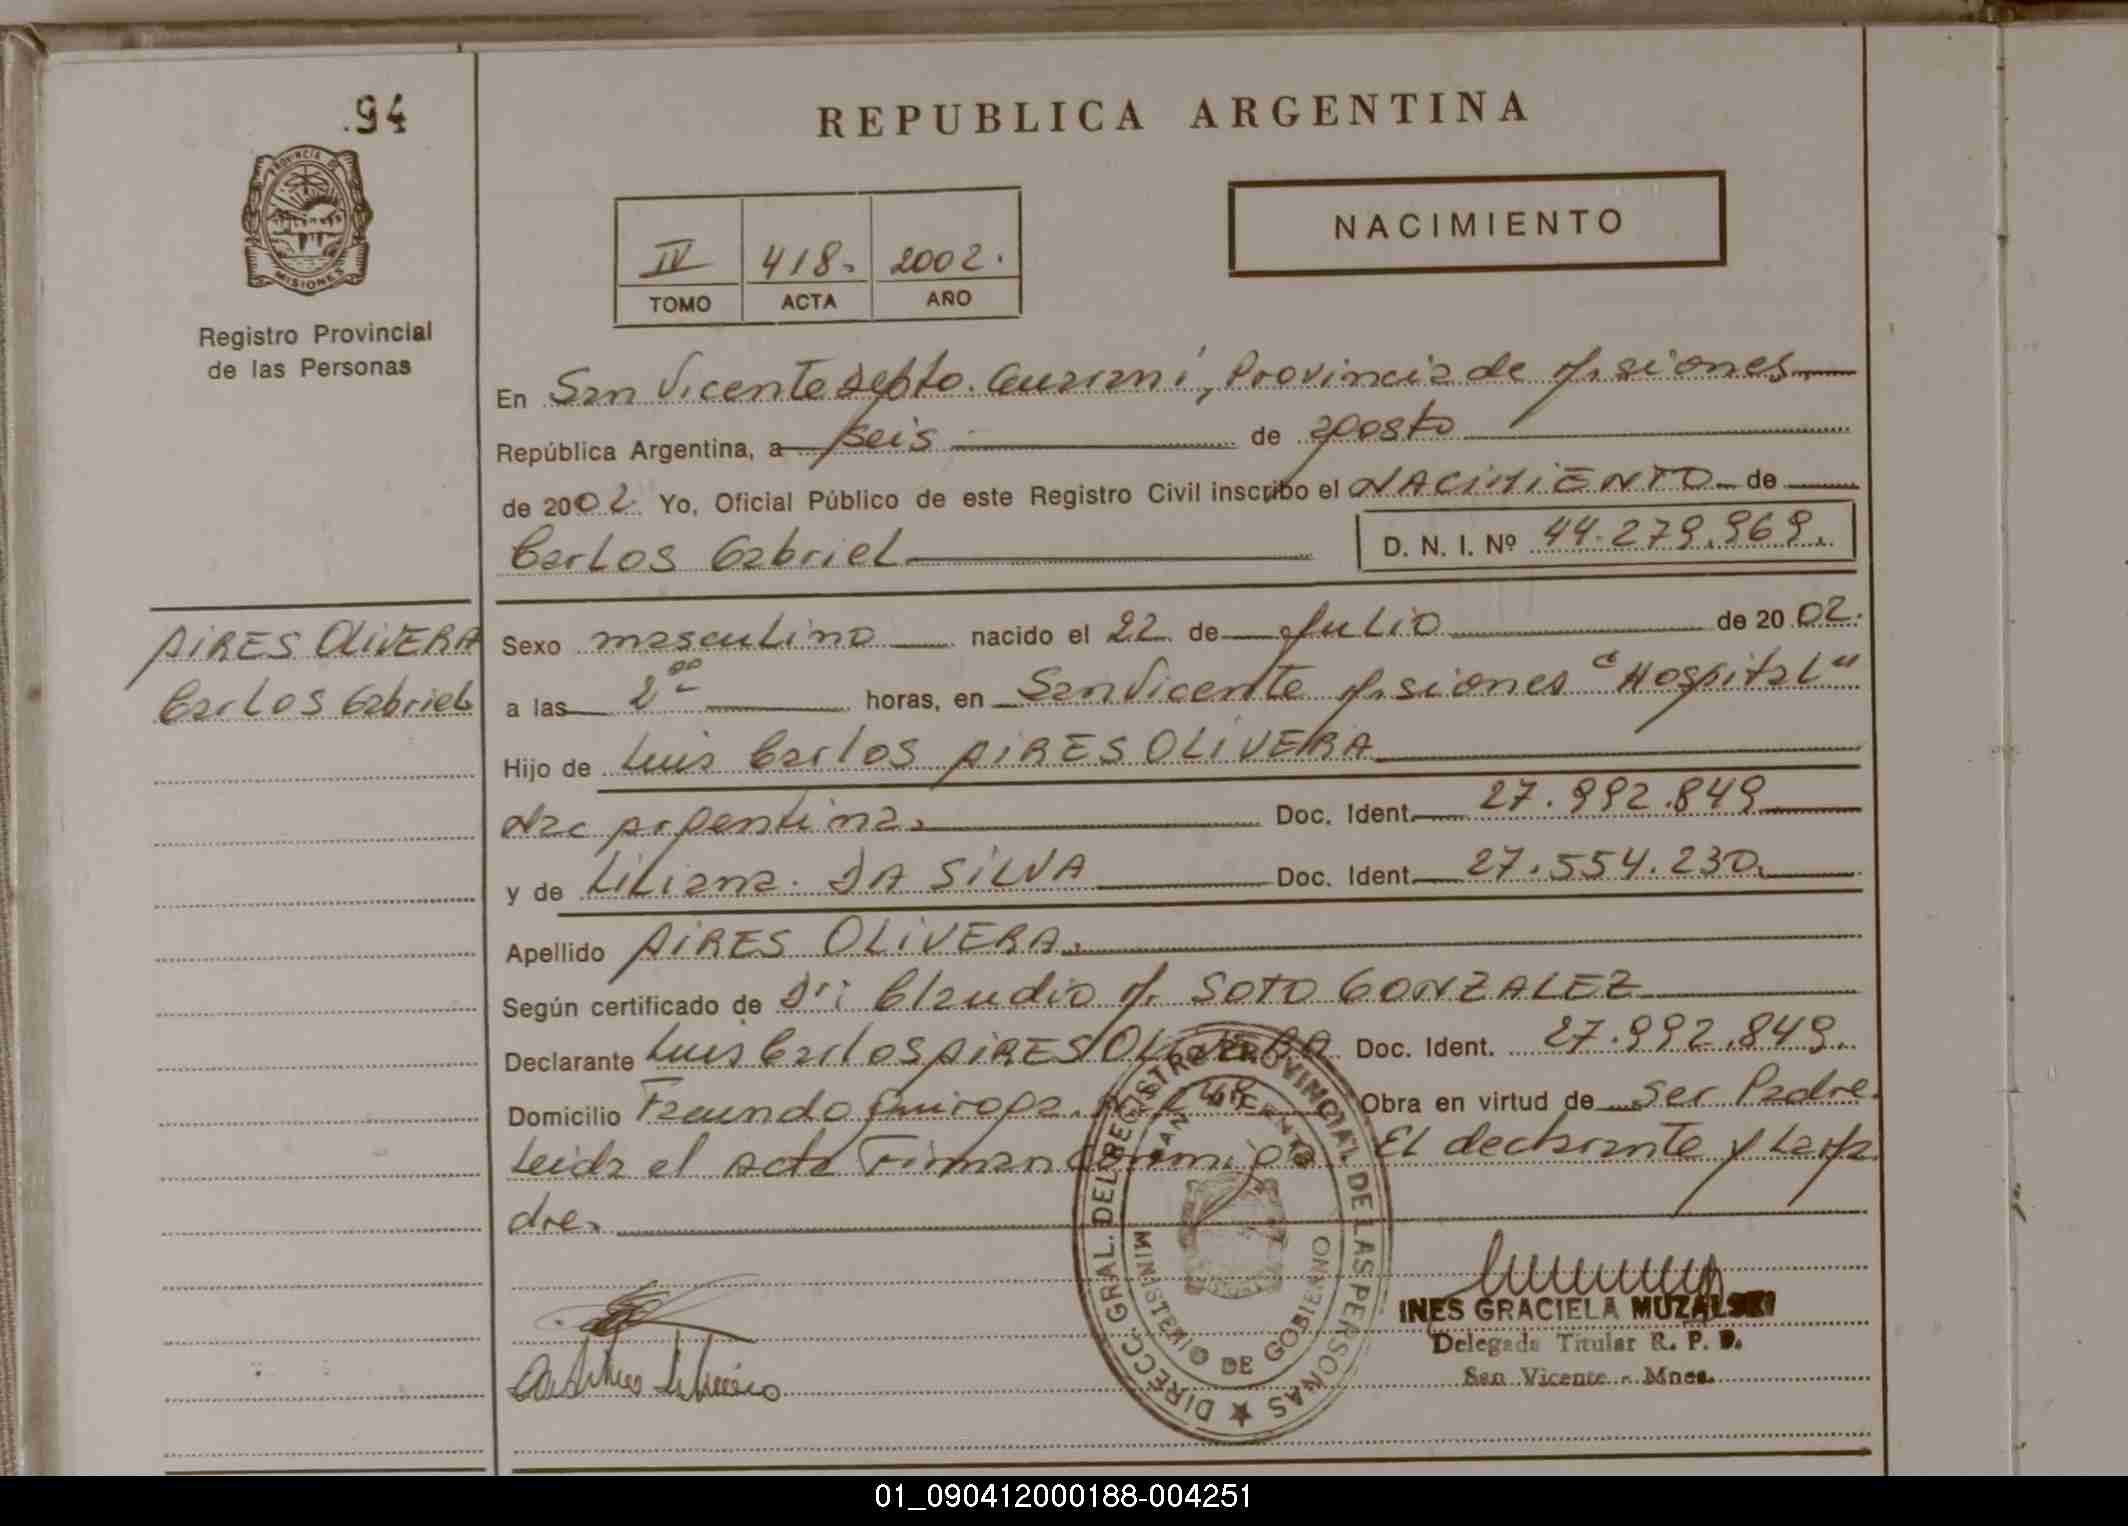 94
PROVINCIA DE
MISIONES
Registro Provincial
de las Personas
REPUBLICA ARGENTINA
IV 418. 2002.
TOMO ACTA AÑO
NACIMIENTO
En San Vicente depto. Guaraní, Provincia de Misiones
República Argentina, a seis de agosto
de 2002 Yo, Oficial Público de este Registro Civil inscribo el NACIMIENTO de
Carlos Gabriel D. N. I. Nº 44.279.969.
AIRES OLIVERA
Carlos Gabriel
Sexo masculino nacido el 22 de Julio de 2002.
a las 2 00 horas, en San Vicente Misiones "Hospital"
Hijo de Luis Carlos AIRES OLIVERA
Nac Argentina. Doc. Ident. 27.992.849
y de Liliana. DA SILVA Doc. Ident. 27.554.230.
Apellido AIRES OLIVERA.
Según certificado de Dr: Claudio M. SOTO GONZALEZ
Declarante Luis Carlos AIRES OLIVERA Doc. Ident. 27.992.849.
Domicilio Facundo Quiroga. Obra en virtud de ser Padre.
Leida el acta Firman conmigo El declarante y La Ma
dre.
DIRECC. GRAL. DEL REGISTRO PROVINCIAL DE LAS PERSONAS
SAN VICENTE
MINISTERIO DE GOBIERNO
INES GRACIELA MUZALSKI
Delegada Titular R. P. P.
San Vicente - Mnes.
01_090412000188-004251